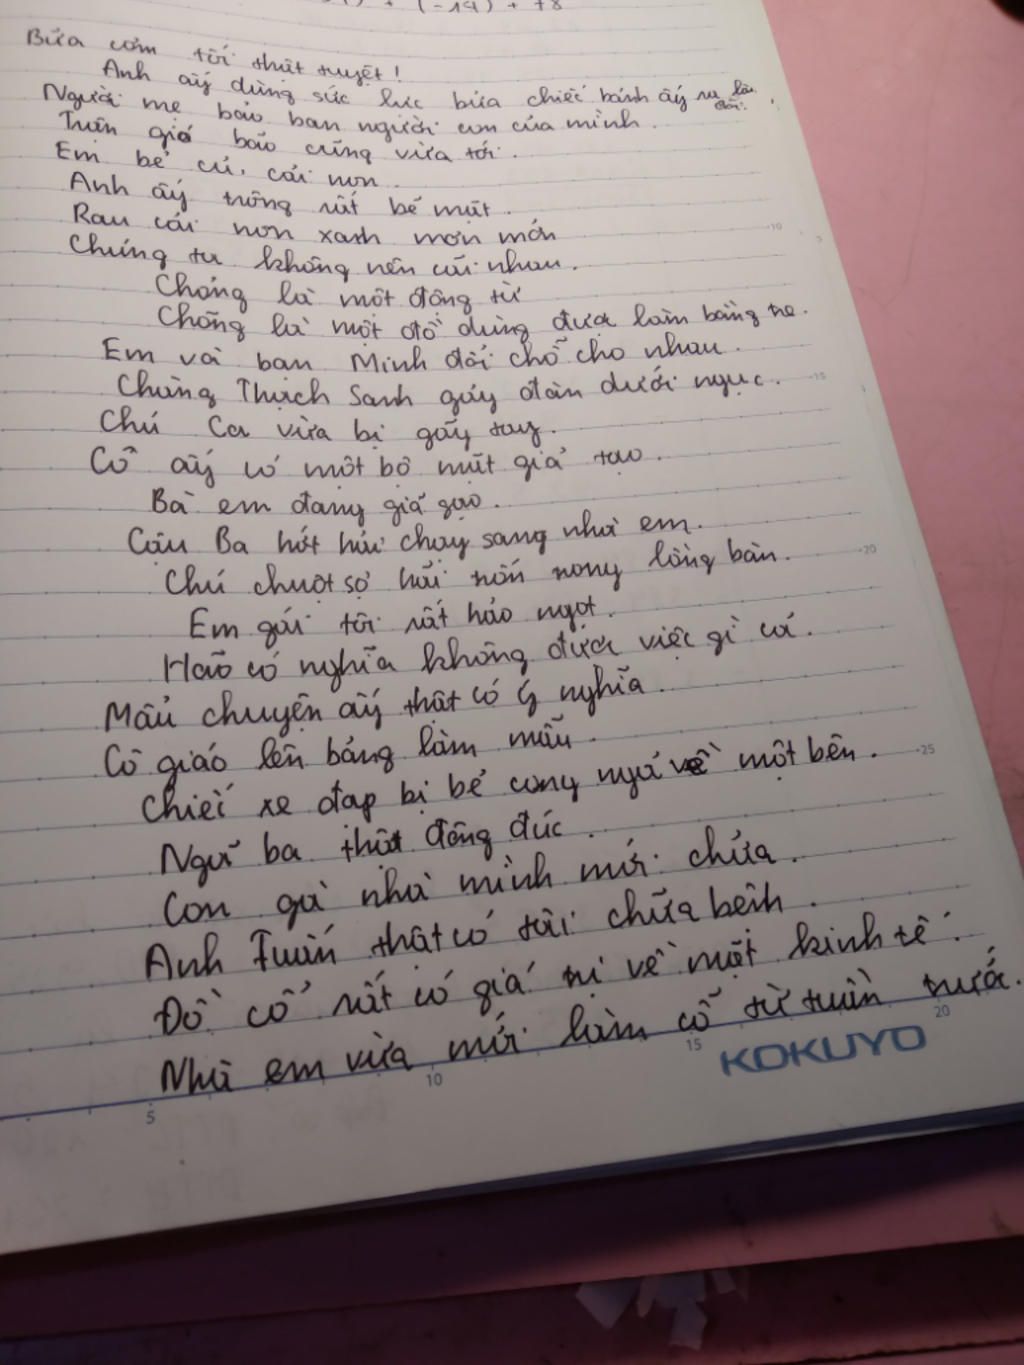 (-19) + 78
Bữa cơm tối thật tuyệt!
Anh ấy dùng sức lực bửa chiếc bánh ấy ra làm đôi.
Người mẹ bảo ban người con của mình.
Trận gió bão cũng vừa tới.
Em bé cứ cãi mẹ.
Anh ấy trông rất bẽ mặt.
Rau cải non xanh mơn mởn
Chúng ta không nên cãi nhau.
Chỏng là một động từ
Chõng là một đồ dùng được làm bằng tre.
Em và bạn Minh đổi chỗ cho nhau.
Chàng Thạch Sanh gảy đàn dưới ngục.
Chú Ca vừa bị gãy tay.
Cô ấy có một bộ mặt giả tạo.
Bà em đang giã gạo.
Cậu Ba hớt hải chạy sang nhà em.
Chú chuột sợ hãi trốn trong lồng bàn.
Em gái tôi rất hảo ngọt.
Hão có nghĩa không được việc gì cả.
Mẩu chuyện ấy thật có ý nghĩa.
Cô giáo lên bảng làm mẫu.
Chiếc xe đạp bị bẻ cong ngả về một bên.
Ngã ba thật đông đúc.
Con gà nhà mình mới chửa.
Anh Tuấn thật có tài chữa bệnh.
Đồ cổ rất có giá trị về mặt kinh tế.
Nhà em vừa mới làm cỗ từ tuần trước.
10
15
20
25
5
10
15
20
KOKUYO